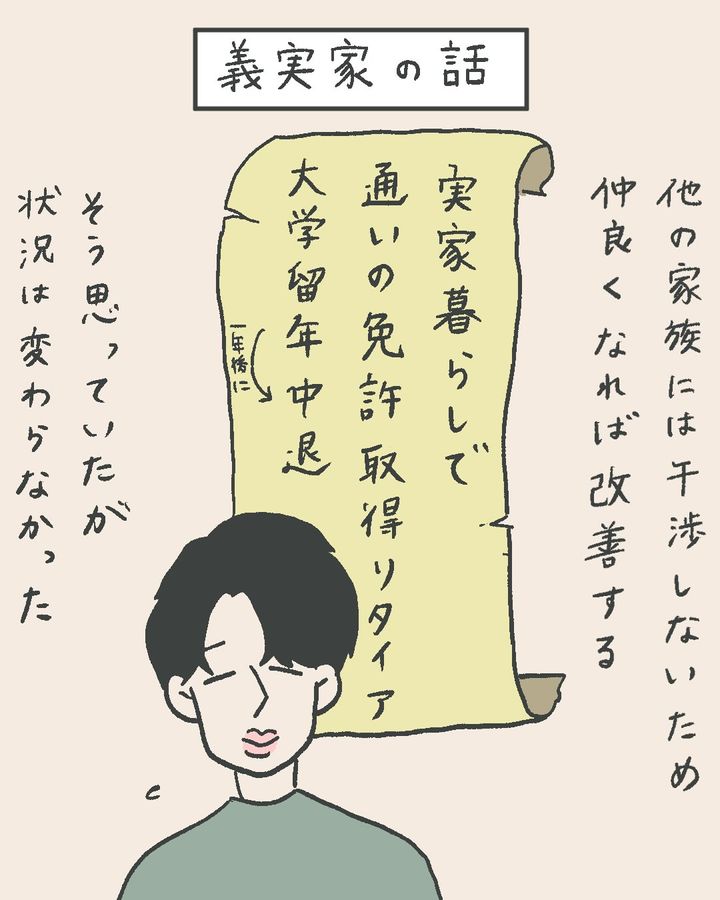 義実家の話
他の家族には干渉しないため
仲良くなれば改善する
実家暮らしで
通いの免許取得リタイア
大学留年中退
一年後に
そう思っていたが
状況は変わらなかった